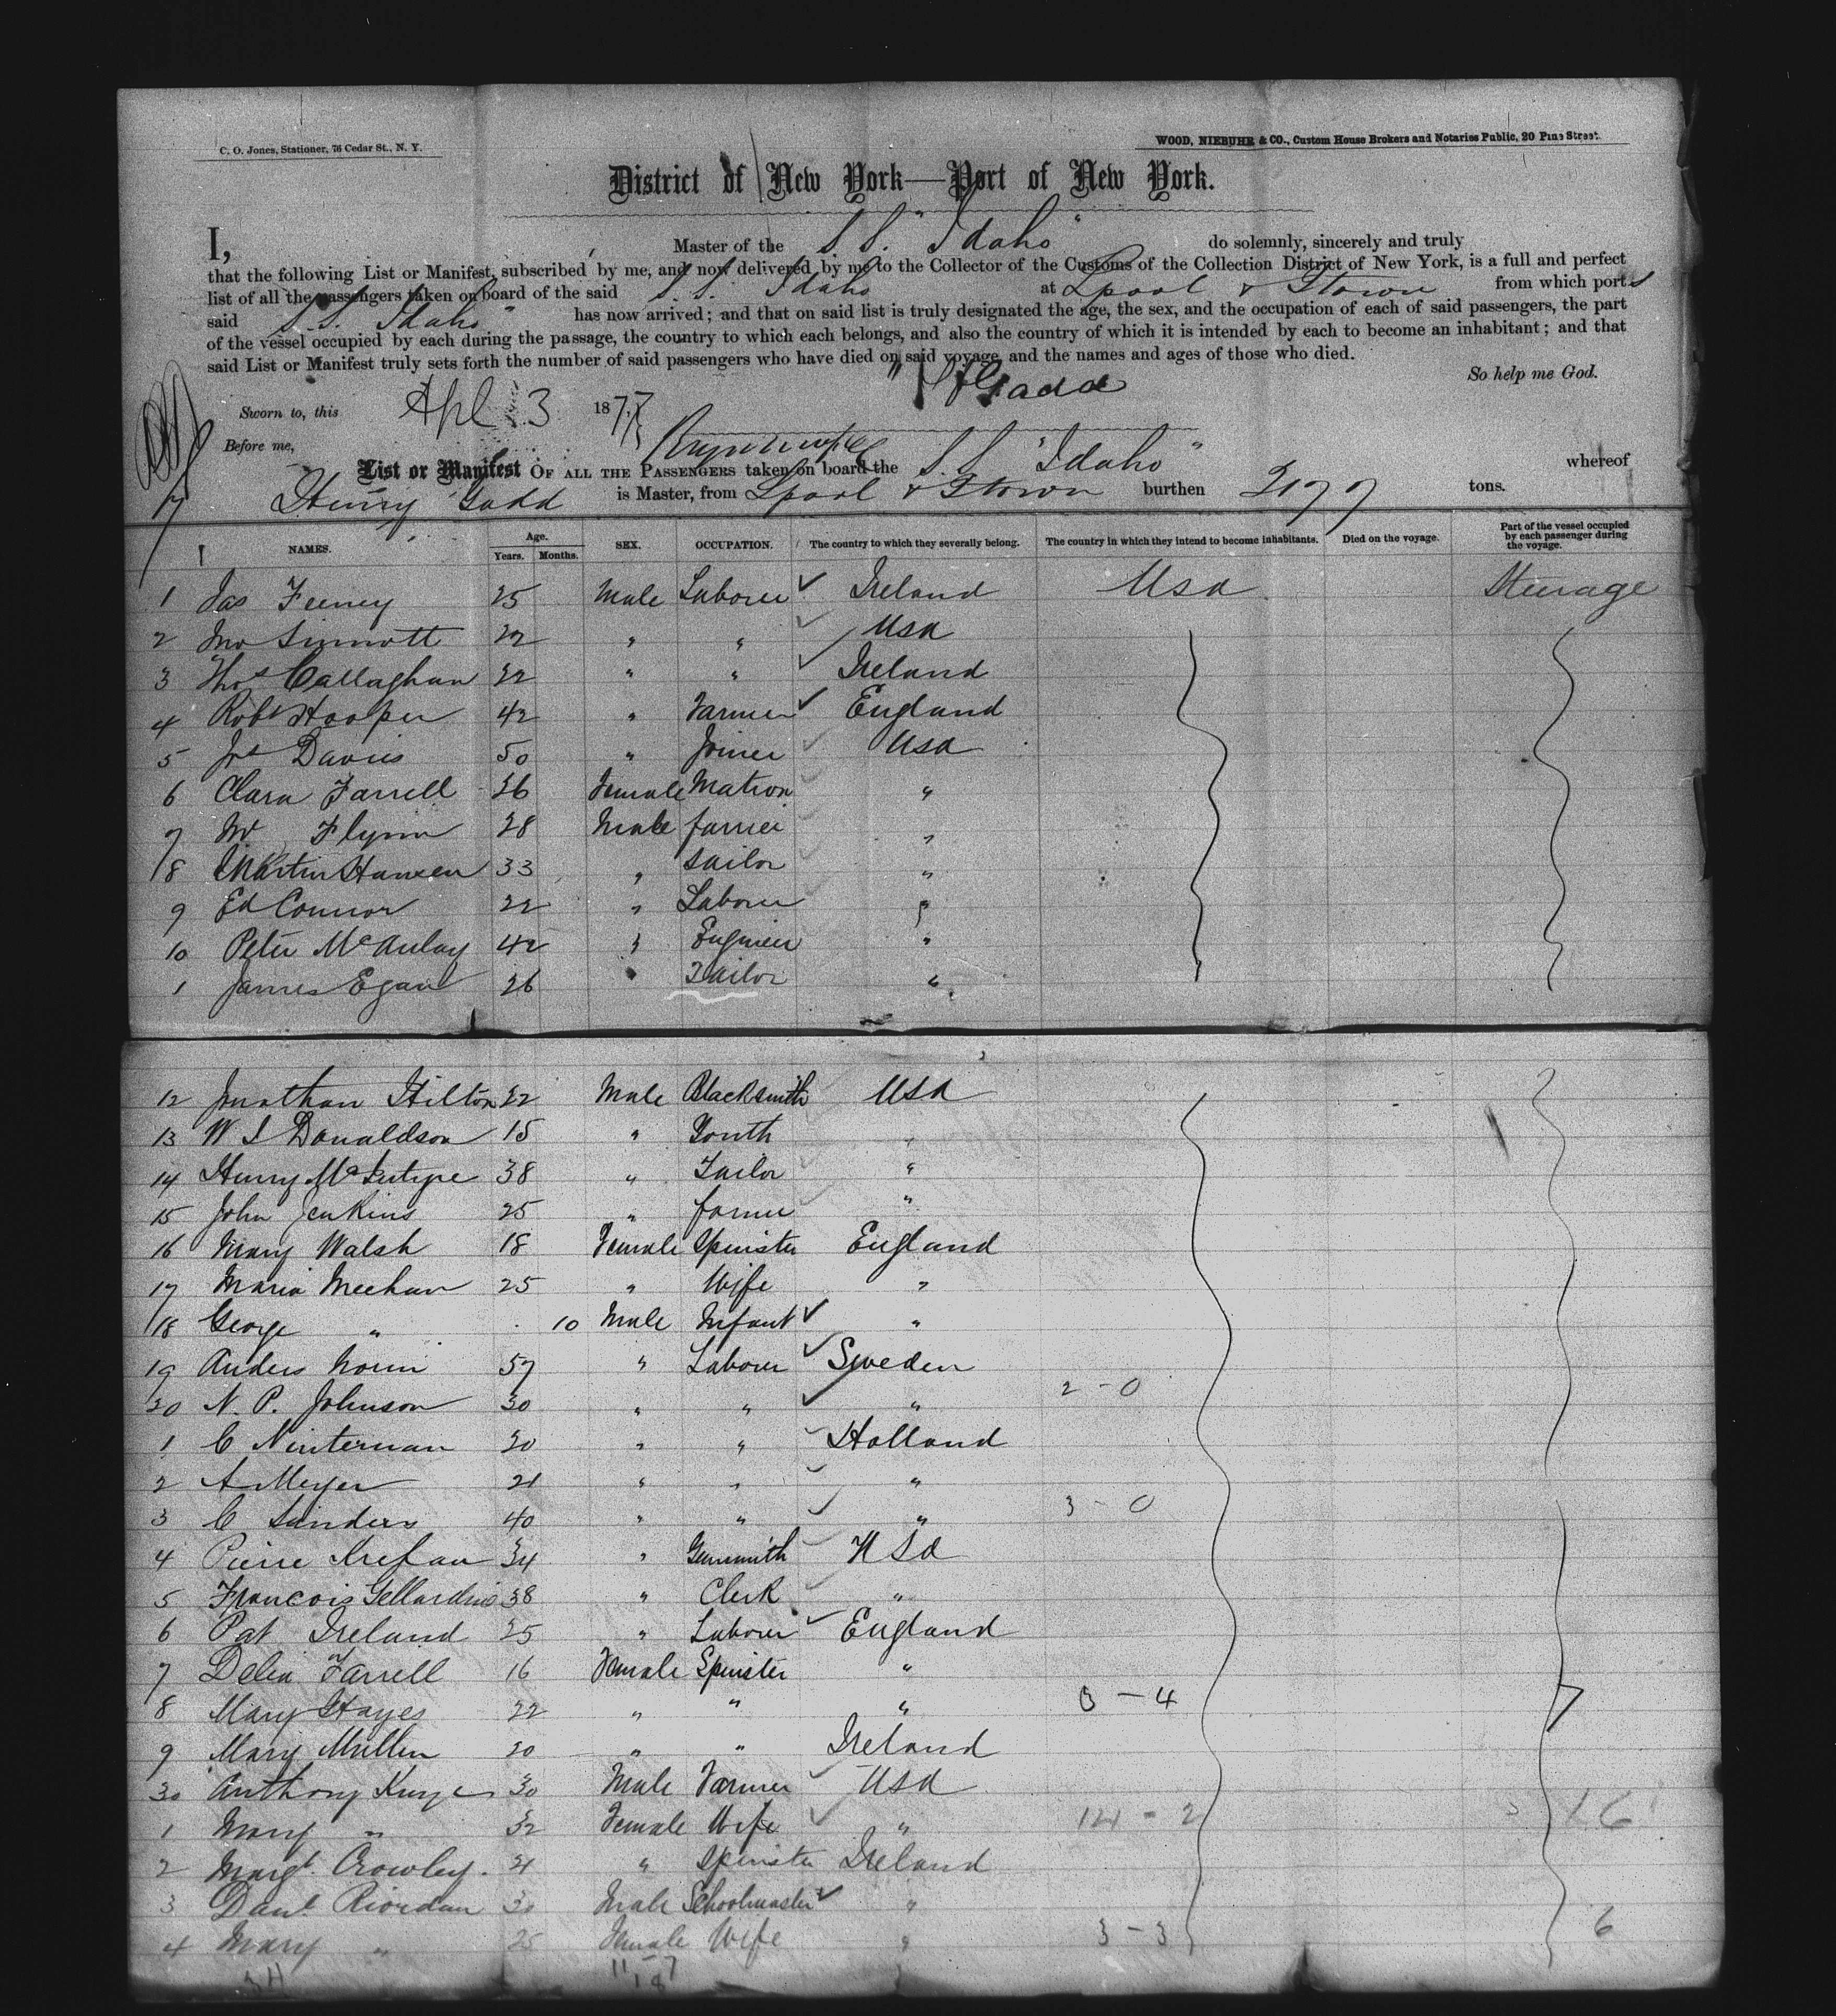 C. O. Jones, Stationer, 76 Cedar St., N. Y.
WOOD, NIEBUHR & CO., Custom House Brokers and Notaries Public, 20 Pine Street.
District of New York—Port of New York.
I, Master of the S.S. "Idaho" do solemnly, sincerely and truly
that the following List or Manifest, subscribed by me, and now delivered by me to the Collector of the Customs of the Collection District of New York, is a full and perfect
list of all the passengers taken on board of the said S.S. Idaho at Lpool & Qtown from which ports
said S.S. Idaho" has now arrived; and that on said list is truly designated the age, the sex, and the occupation of each of said passengers, the part
of the vessel occupied by each during the passage, the country to which each belongs, and also the country of which it is intended by each to become an inhabitant; and that
said List or Manifest truly sets forth the number of said passengers who have died on said voyage, and the names and ages of those who died.
So help me God.
Gadd
Sworn to, this Apl 3 1877
Before me,
List or Manifest OF ALL THE PASSENGERS taken on board the S.S. "Idaho" whereof
Henry Gadd is Master, from Lpool & Qtown burthen tons.
NAMES. Age. Years. Months. SEX. OCCUPATION. The country to which they severally belong. The country in which they intend to become inhabitants. Died on the voyage. Part of the vessel occupied by each passenger during the voyage.
1 Jas Feeney 25 Male Laborer Ireland Usa Steerage
2 Jno Sinnott 22 " " Usa
3 Thos Callaghan 22 " " Ireland
4 Robt Hooper 42 " Farmer England
5 Davies 50 " Joiner Usa
6 Clara Farrell 26 Female Matron "
7 Flynn 28 Male farmer "
8 Martin Hansen 33 " sailor "
9 Ed Connor 22 " Laborer "
10 Peter McAulay 42 " Engineer "
1 James Egan 26 " Tailor "
12 Jonathan Hilton 22 Male Blacksmith Usa
13 W J Donaldson 15 " Youth "
14 Henry McIntyre 38 " Tailor "
15 John Jenkins 25 " farmer "
16 Mary Walsh 18 Female Spinster England
17 Maria Meehan 25 " Wife "
18 George " 10 Male Infant "
19 Anders Norin 57 " Laborer Sweden
20 N. P. Johnson 30 " " "
2 - 0
1 C Ninterman 20 " " Holland
2 A Meyer 21 " " "
3 C Sanders 40 " " "
3 - 0
4 Pierre 34 " Gunsmith Usa
5 Francois 38 " Clerk "
6 Pat Ireland 25 " Laborer England
7 Delia Farrell 16 Female Spinster "
8 Mary Hayes 22 " " "
3 - 4
9 Mary Mullen 20 " " Ireland
30 Anthony 30 Male Farmer Usa
1 Mary " 32 Female Wife "
2 Margt. Crowley 21 " Spinster Ireland
3 Danl Riordan 30 Male Schoolmaster "
4 Mary " 25 Female Wife "
3 - 3
6
34